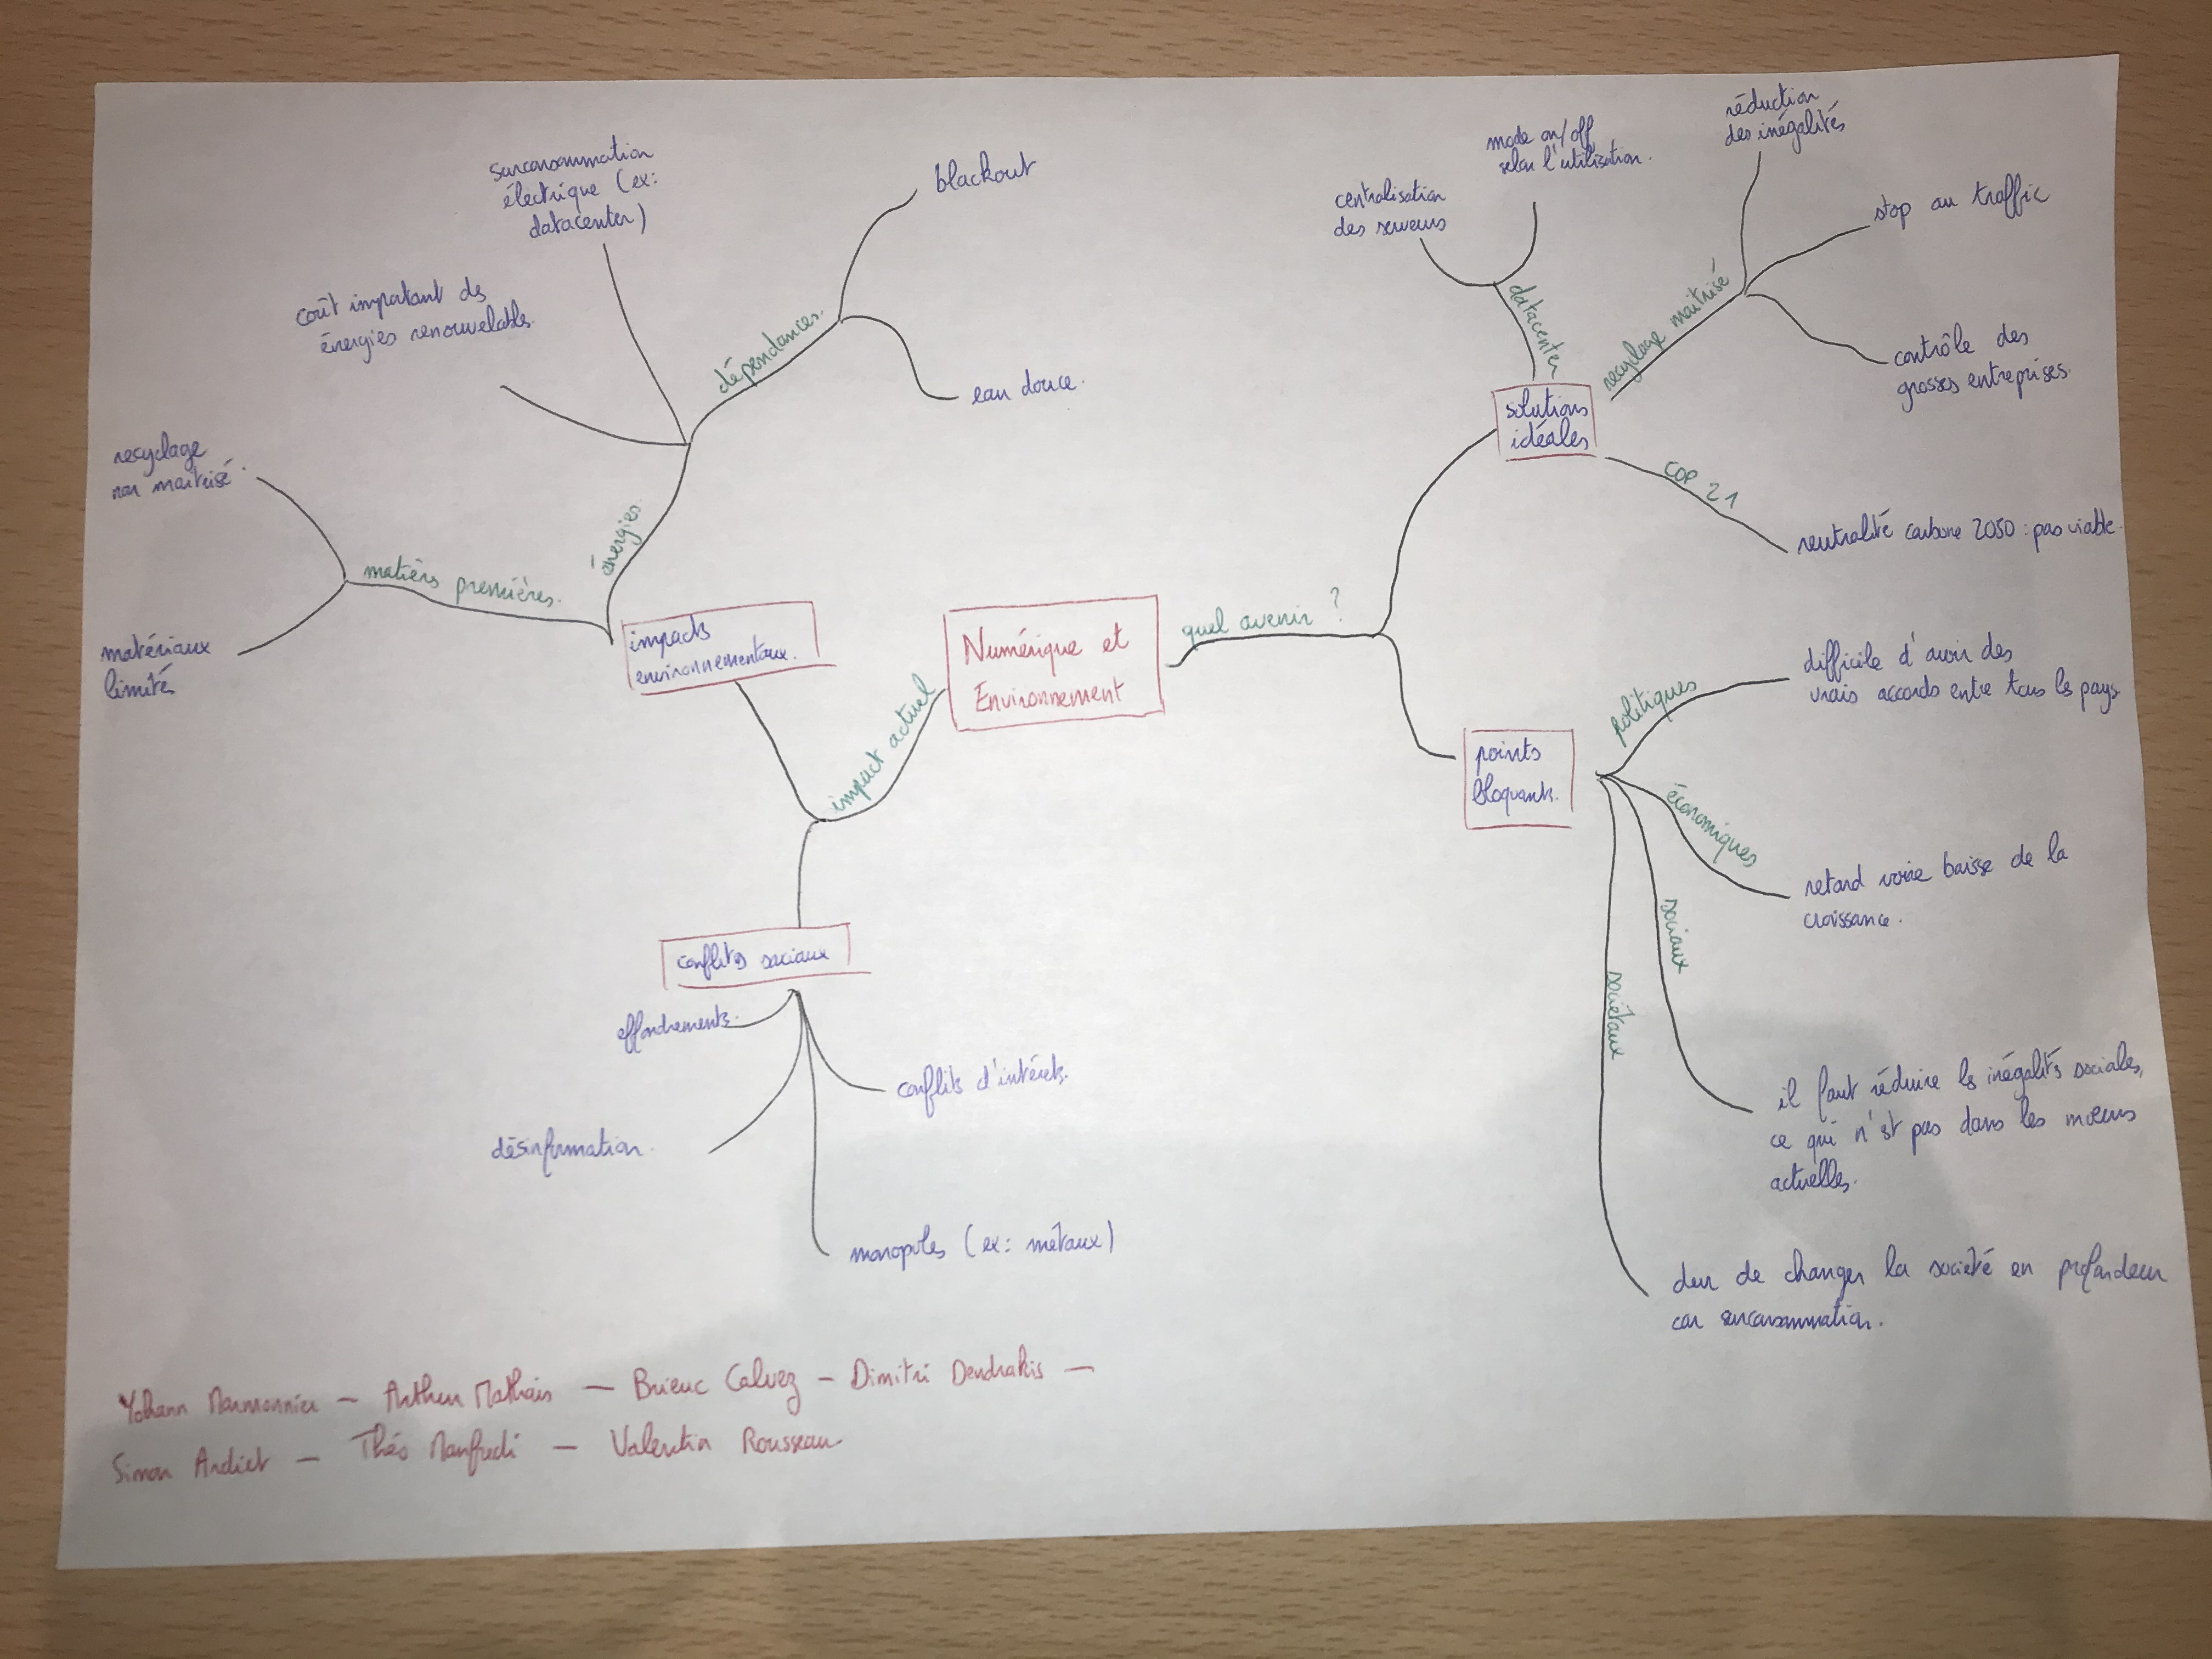 surconsommation
électrique (ex:
datacenter)
blackout
coût important des
énergies renouvelables.
dépendances.
eau douce.
recyclage
non maitrisé.
énergies.
matières premières.
matériaux
limité
impacts
environnementaux.
impact actuel
Numérique et
Environnement
conflits sociaux
effondrements.
conflits d'intérêts.
désinformation.
monopoles (ex: métaux)
quel avenir ?
solutions
idéales
datacenter
centralisation
des serveurs
mode on/off
selon l'utilisation.
recyclage maitrisé
réduction
des inégalités
stop au traffic
contrôle des
grosses entreprises.
COP 21
neutralité carbone 2050 : pas viable.
points
bloquants.
politiques
difficile d'avoir des
vrais accords entre tous les pays
économiques
retard voire baisse de la
croissance.
sociaux
il faut réduire les inégalités sociales,
ce qui n'est pas dans les moeurs
actuelles.
sociétaux
dur de changer la société en profondeur
car surconsommation.
Yohann Marmonnier — Arthur Mathais — Brieuc Calvez - Dimitri Dendrakis —
Simon Ardiet — Théo Manfredi — Valentin Rousseau